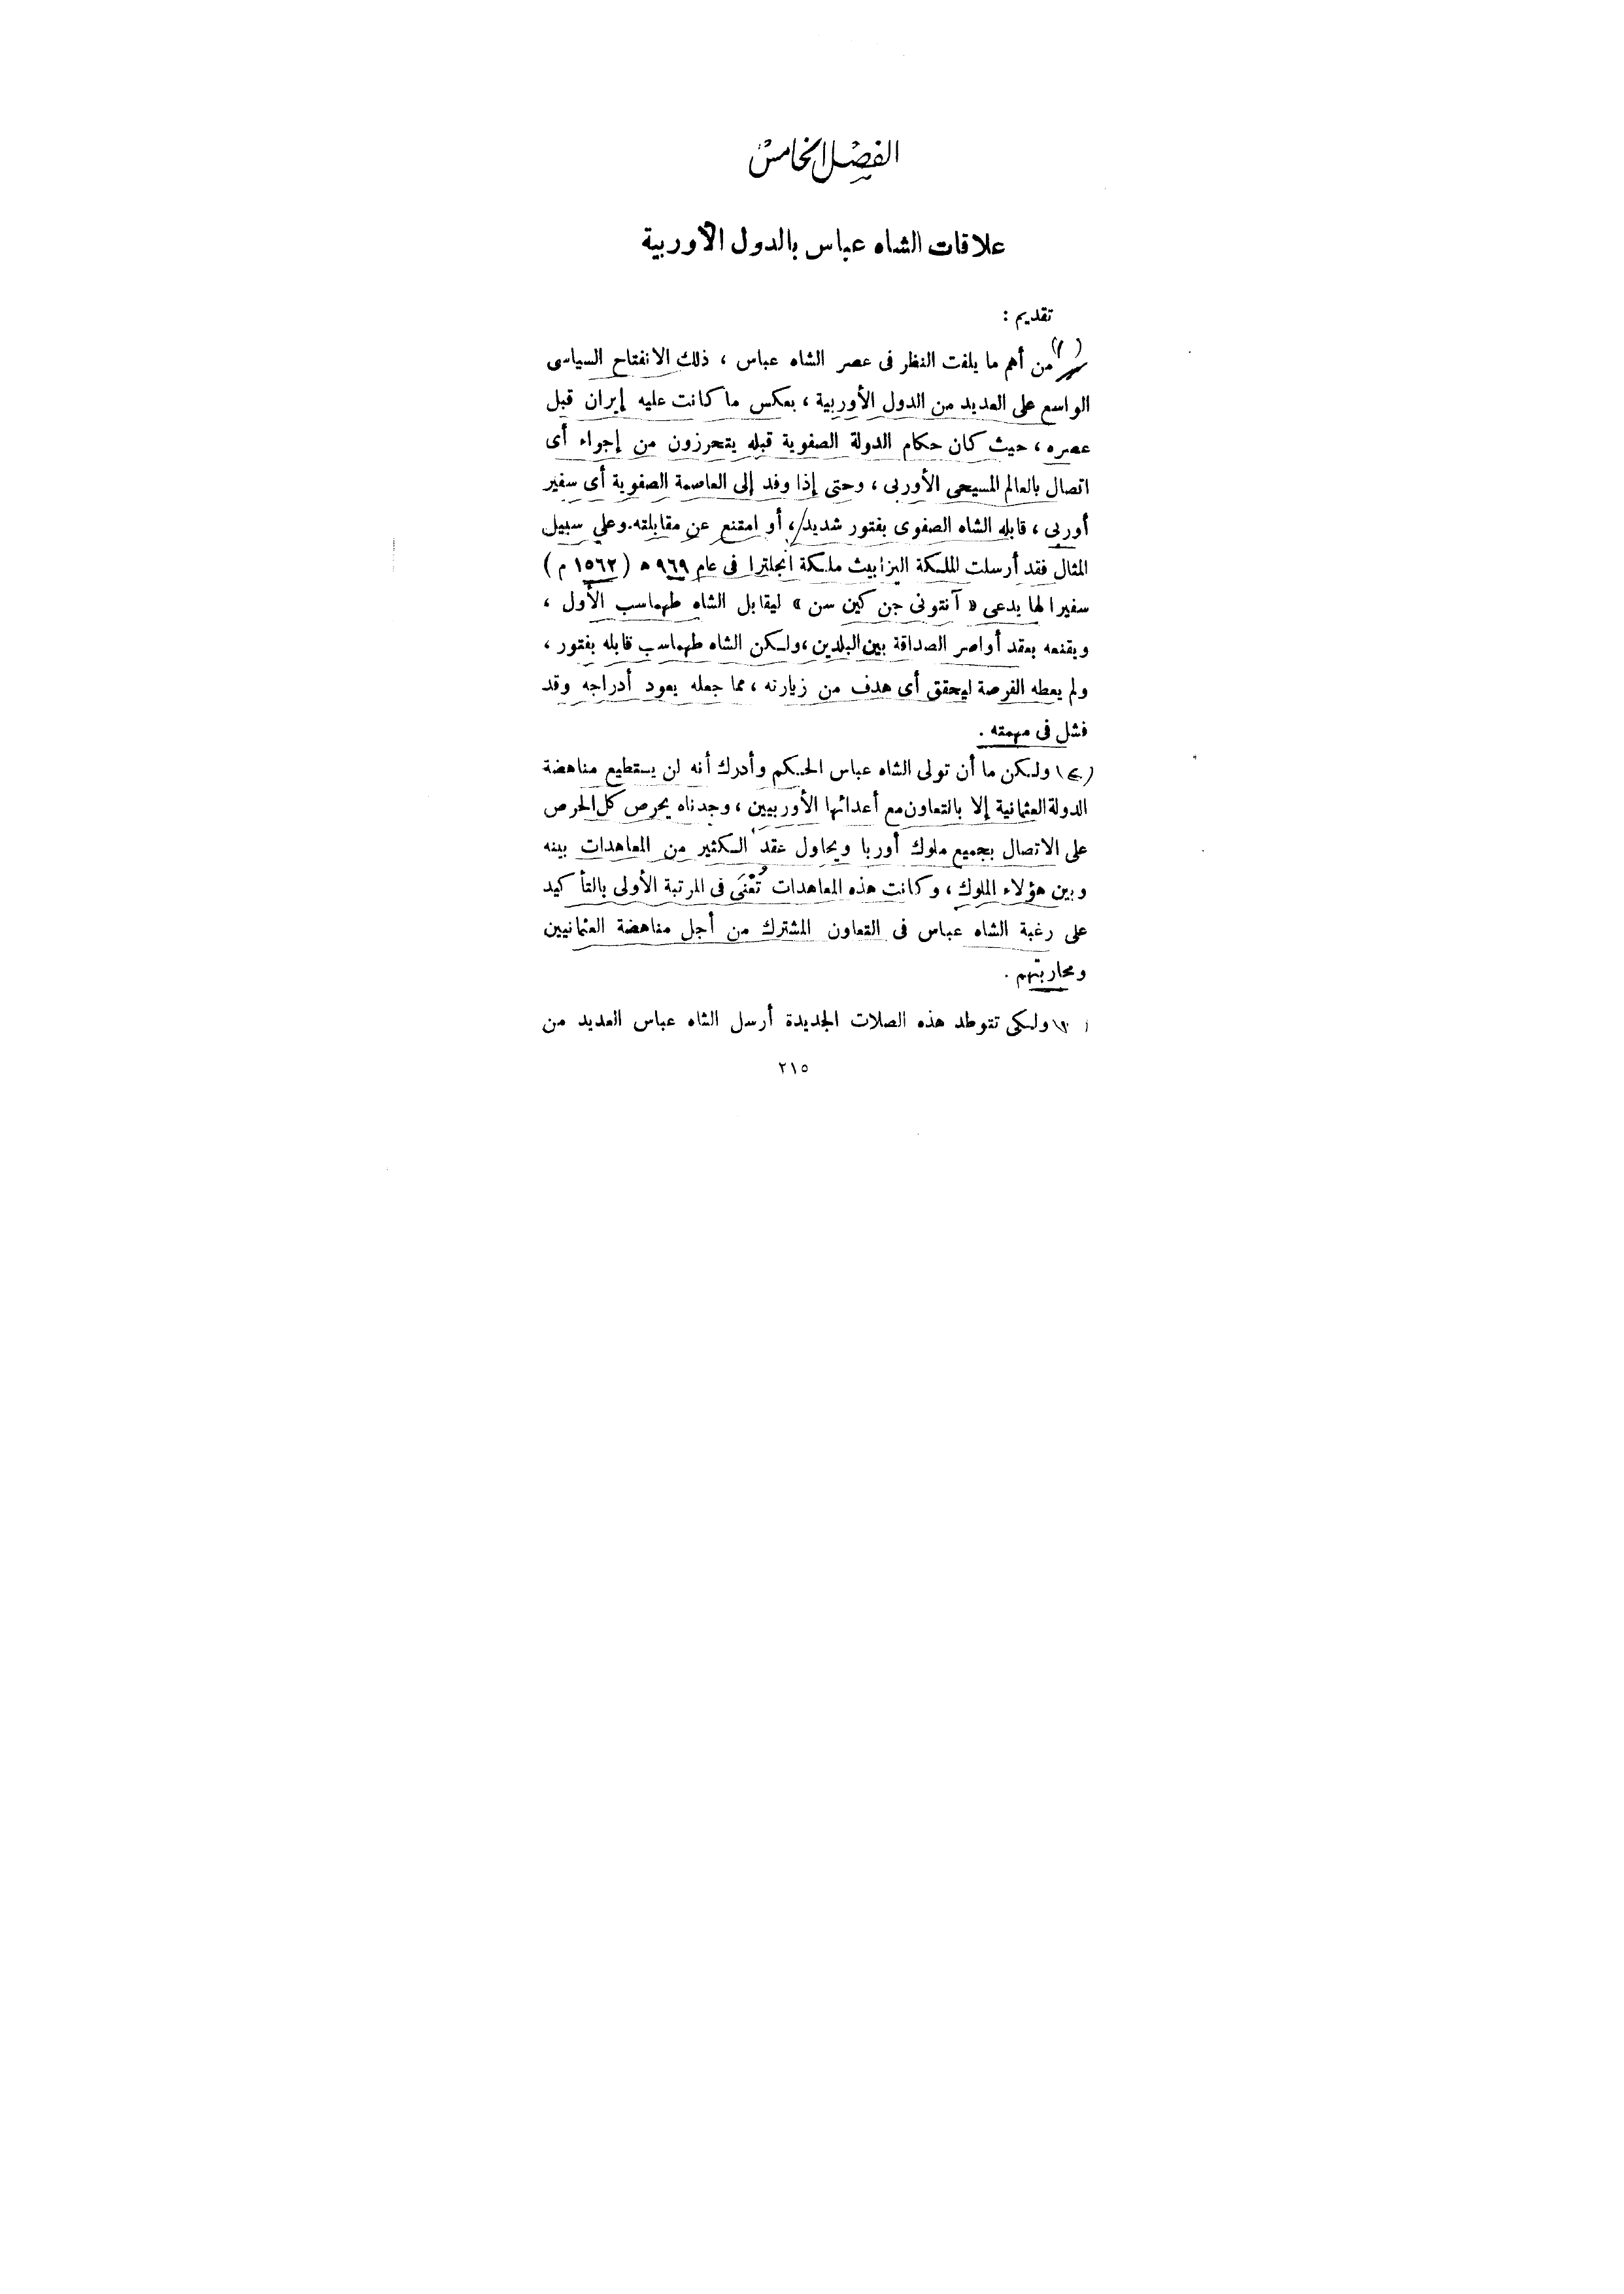 الفصل الخامس
علاقات الشاه عباس بالدول الأوربية
تقديم :
(١) من أهم ما يلفت النظر فى عصر الشاه عباس ، ذلك الانفتاح السياسى
الواسع على العديد من الدول الأوربية ، بعكس ما كانت عليه إيران قبل
عصره ، حيث كان حكام الدولة الصفوية قبله يتحرزون من إجراء أى
اتصال بالعالم المسيحى الأوربى ، وحتى إذا وفد إلى العاصمة الصفوية أى سفير
أوربى ، قابله الشاه الصفوى بفتور شديد ، أو امتنع عن مقابلته . وعلى سبيل
المثال فقد أرسلت الملكة اليزابيث ملكة انجلترا فى عام ٩٦٩ ه ( ١٥٦٢ م )
سفيرا لها يدعى « آنتونى جن كين سن » ليقابل الشاه طهماسب الأول ،
ويقنعه بعقد أواصر الصداقة بين البلدين ، ولكن الشاه طهماسب قابله بفتور ،
ولم يعطه الفرصة ليحقق أى هدف من زيارته ، مما جعله يعود أدراجه وقد
فشل فى مهمته .
ولكن ما أن تولى الشاه عباس الحكم وأدرك أنه لن يستطيع مناهضة
الدولة العثمانية إلا بالتعاون مع أعدائها الأوربيين ، وجدناه يحرص كل الحرص
على الاتصال بجميع ملوك أوربا ويحاول عقد الكثير من المعاهدات بينه
وبين هؤلاء الملوك ، وكانت هذه المعاهدات تُعْنَى فى المرتبة الأولى بالتأكيد
على رغبة الشاه عباس فى التعاون المشترك من أجل مناهضة العثمانيين
ومحاربتهم .
ولكى تتوطد هذه الصلات الجديدة أرسل الشاه عباس العديد من
٢١٥